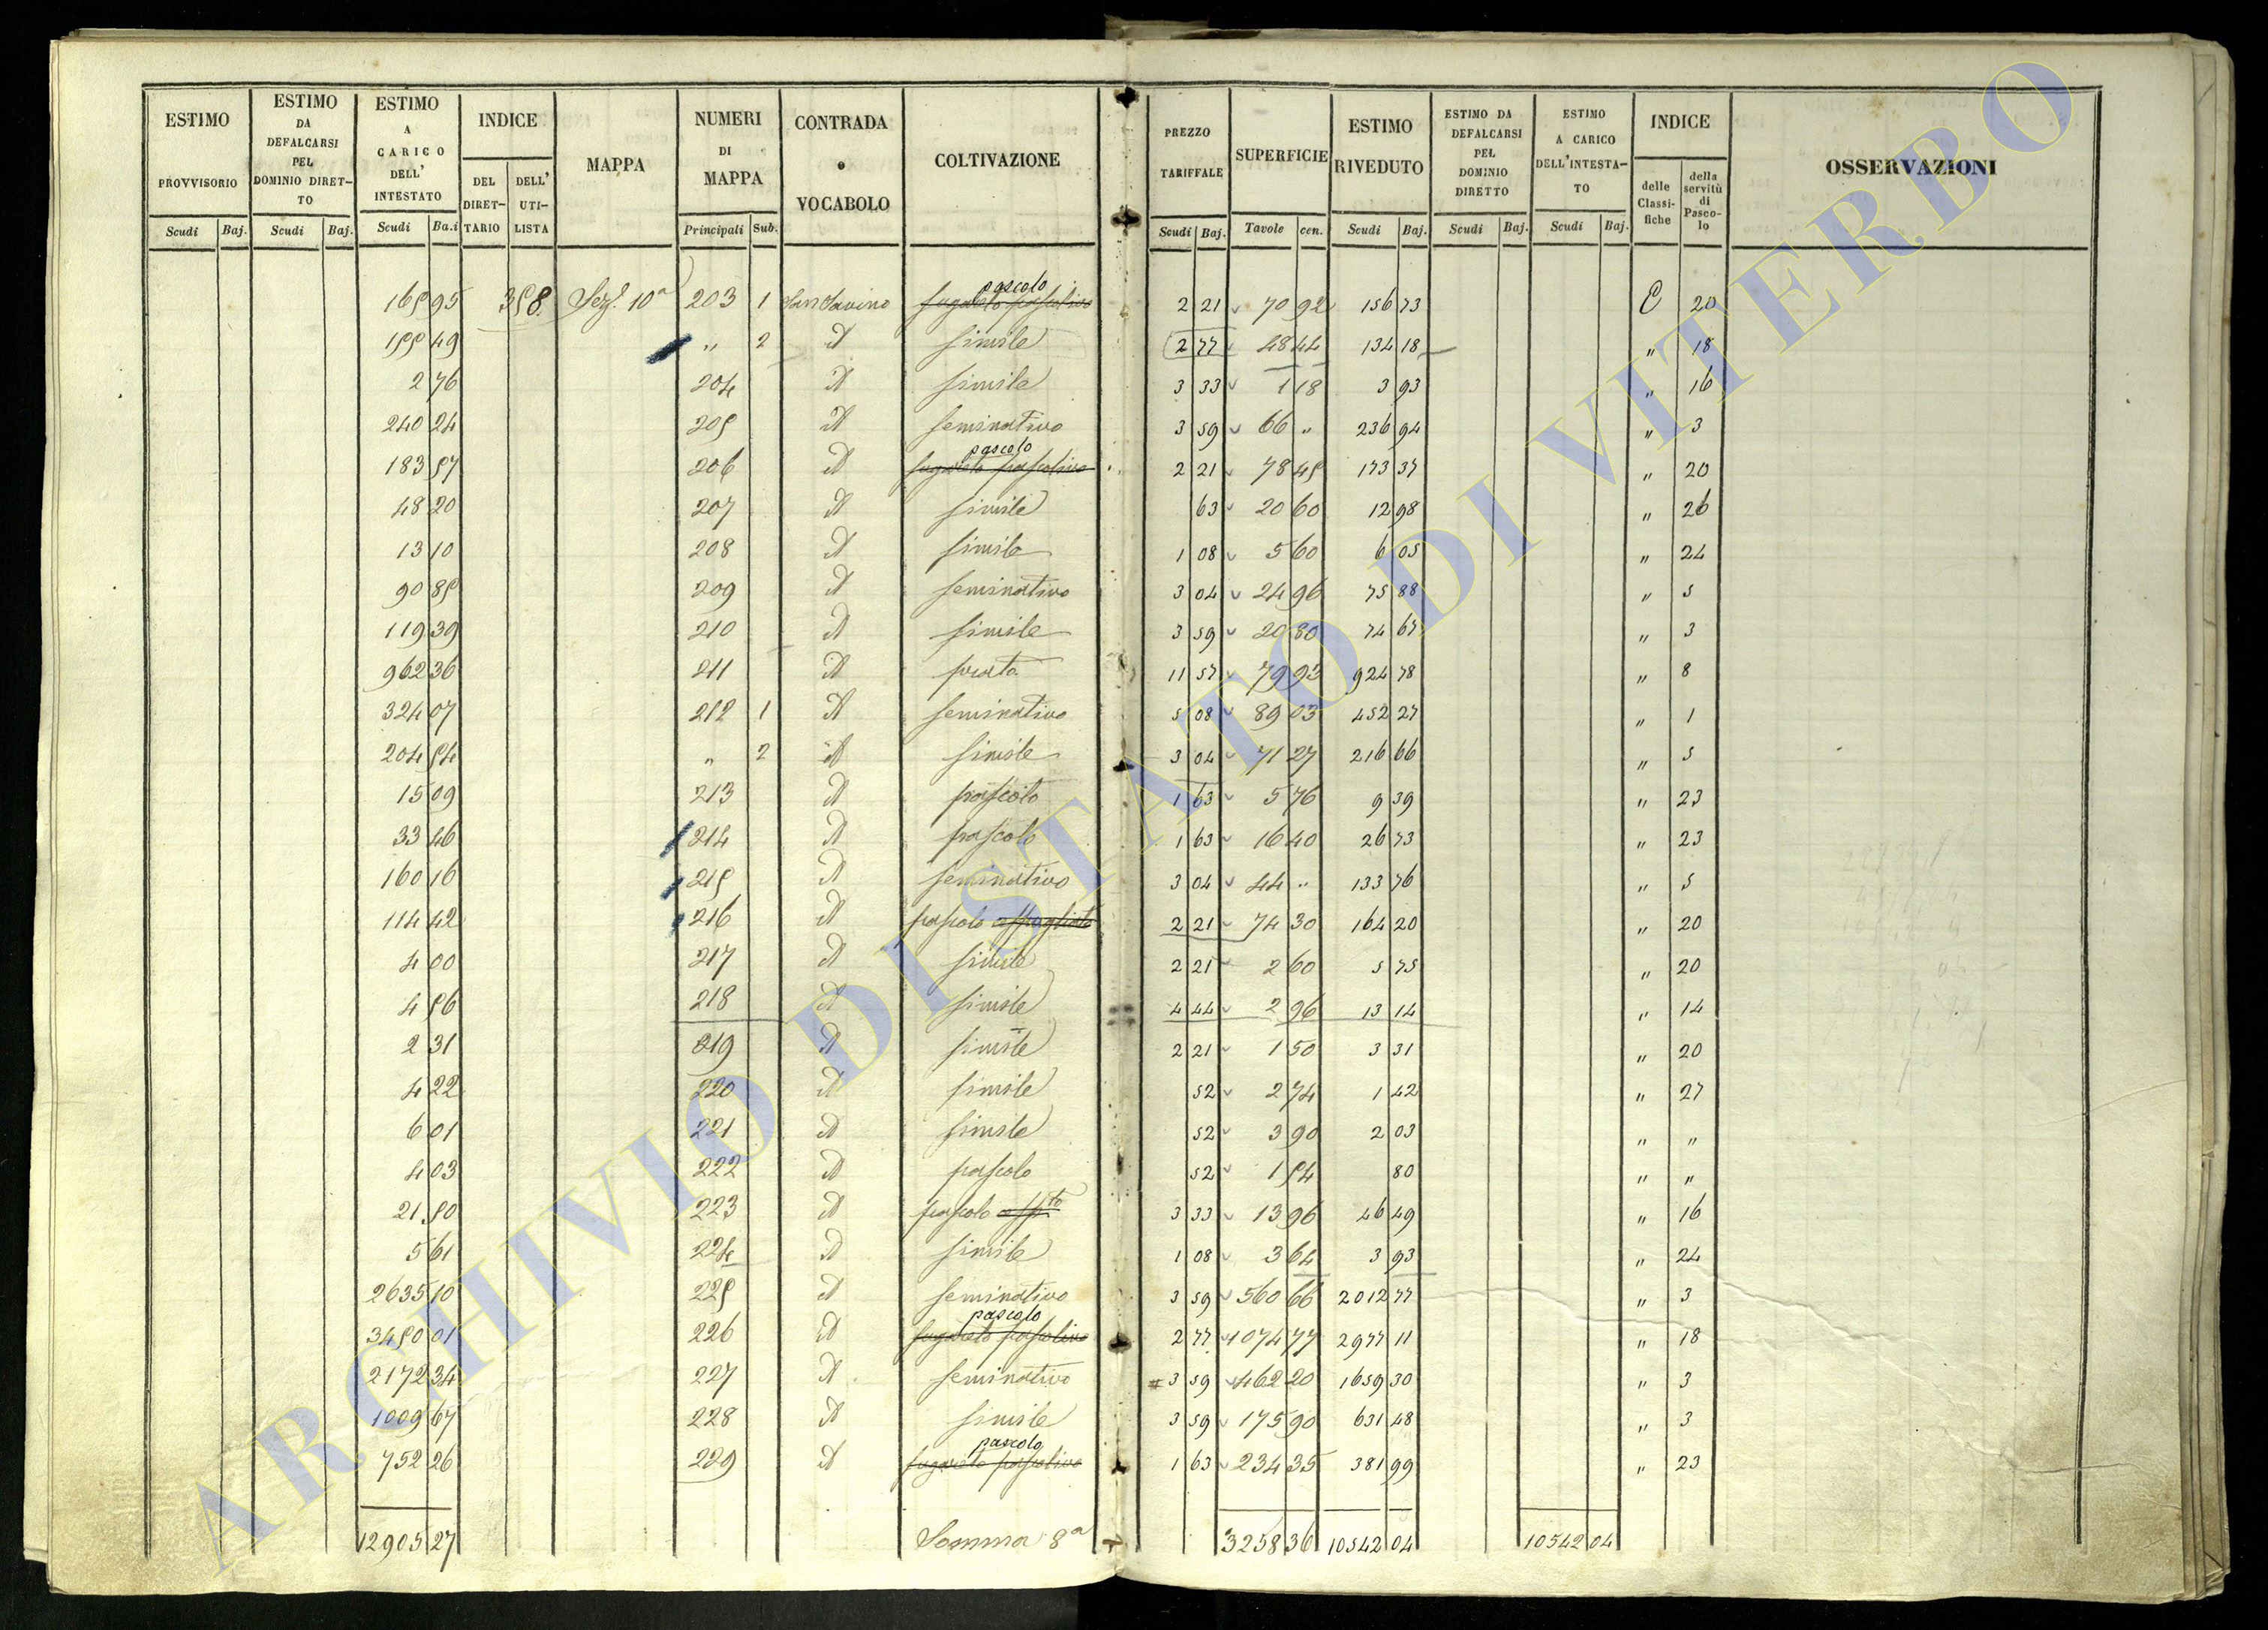 ESTIMO PROVVISORIO Scudi Baj.
ESTIMO DA DEFALCARSI PEL DOMINIO DIRET-TO Scudi Baj.
ESTIMO A CARICO DELL' INTESTATO Scudi Ba.i
INDICE DEL DIRET-TARIO DELL' UTI-LISTA
MAPPA
NUMERI DI MAPPA Principali Sub.
CONTRADA o VOCABOLO
COLTIVAZIONE
PREZZO TARIFFALE Scudi Baj.
SUPERFICIE Tavole cen.
ESTIMO RIVEDUTO Scudi Baj.
ESTIMO DA DEFALCARSI PEL DOMINIO DIRETTO Scudi Baj.
ESTIMO A CARICO DELL'INTESTA-TO Scudi Baj.
INDICE delle Classi-fiche della servitù di Pasco-lo
OSSERVAZIONI
165 95 358 Sez.e 10a 203 1 San Savino pascolo 2 21 70 92 156 73 E 20
155 49 " 2 id simile 2 77 48 44 134 18 " 18
2 76 204 id simile 3 33 1 18 3 93 " 16
240 24 205 id seminativo 3 59 66 " 236 94 " 3
183 57 206 id pascolo 2 21 78 45 173 37 " 20
48 20 207 id simile 63 20 60 12 98 " 26
13 10 208 id simile 1 08 5 60 6 05 " 24
90 85 209 id seminativo 3 04 24 96 75 88 " 5
119 39 210 id simile 3 59 20 80 74 67 " 3
962 36 211 id prato 11 57 79 93 924 78 " 8
324 07 212 1 id seminativo 5 08 89 03 452 27 " 1
204 54 " 2 id simile 3 04 71 27 216 66 " 5
15 09 213 id pascolo 1 63 5 76 9 39 " 23
33 46 214 id pascolo 1 63 16 40 26 73 " 23
160 16 215 id seminativo 3 04 44 " 133 76 " 5
114 42 216 id pascolo 2 21 74 30 164 20 " 20
4 00 217 id simile 2 21 2 60 5 75 " 20
4 56 218 id simile 4 44 2 96 13 14 " 14
2 31 219 id simile 2 21 1 50 3 31 " 20
4 22 220 id simile 52 2 74 1 42 " 27
6 01 221 id simile 52 3 90 2 03 " "
4 03 222 id pascolo 52 1 54 80 " "
21 50 223 id pascolo 3 33 13 96 46 49 " 16
5 61 224 id simile 1 08 3 64 3 93 " 24
2635 10 225 id seminativo 3 59 560 66 2012 77 " 3
3450 01 226 id pascolo 2 77 1074 77 2977 11 " 18
2172 34 227 id seminativo 3 59 462 20 1659 30 " 3
1009 67 228 id simile 3 59 175 90 631 48 " 3
752 26 229 id pascolo 1 63 234 35 381 99 " 23
12905 27 Somma 8a 3258 36 10542 04 10542 04
ARCHIVIO DI STATO DI VITERBO